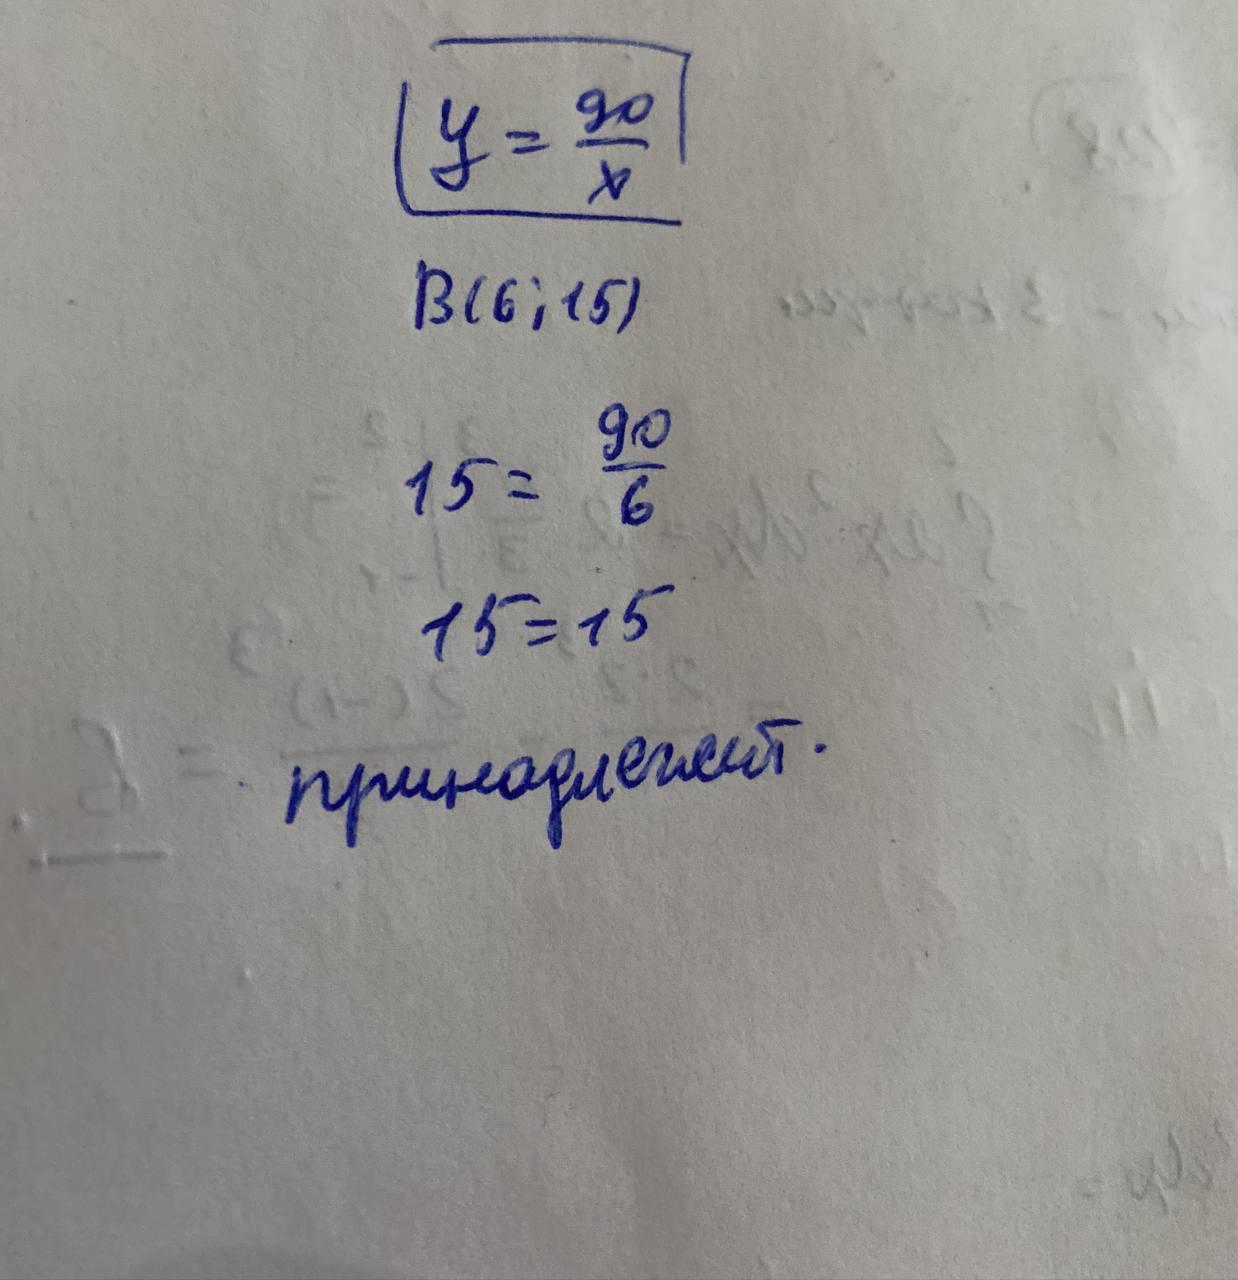 y = 90/x
B(6; 15)
15 = 90/6
15 = 15
принадлежит.